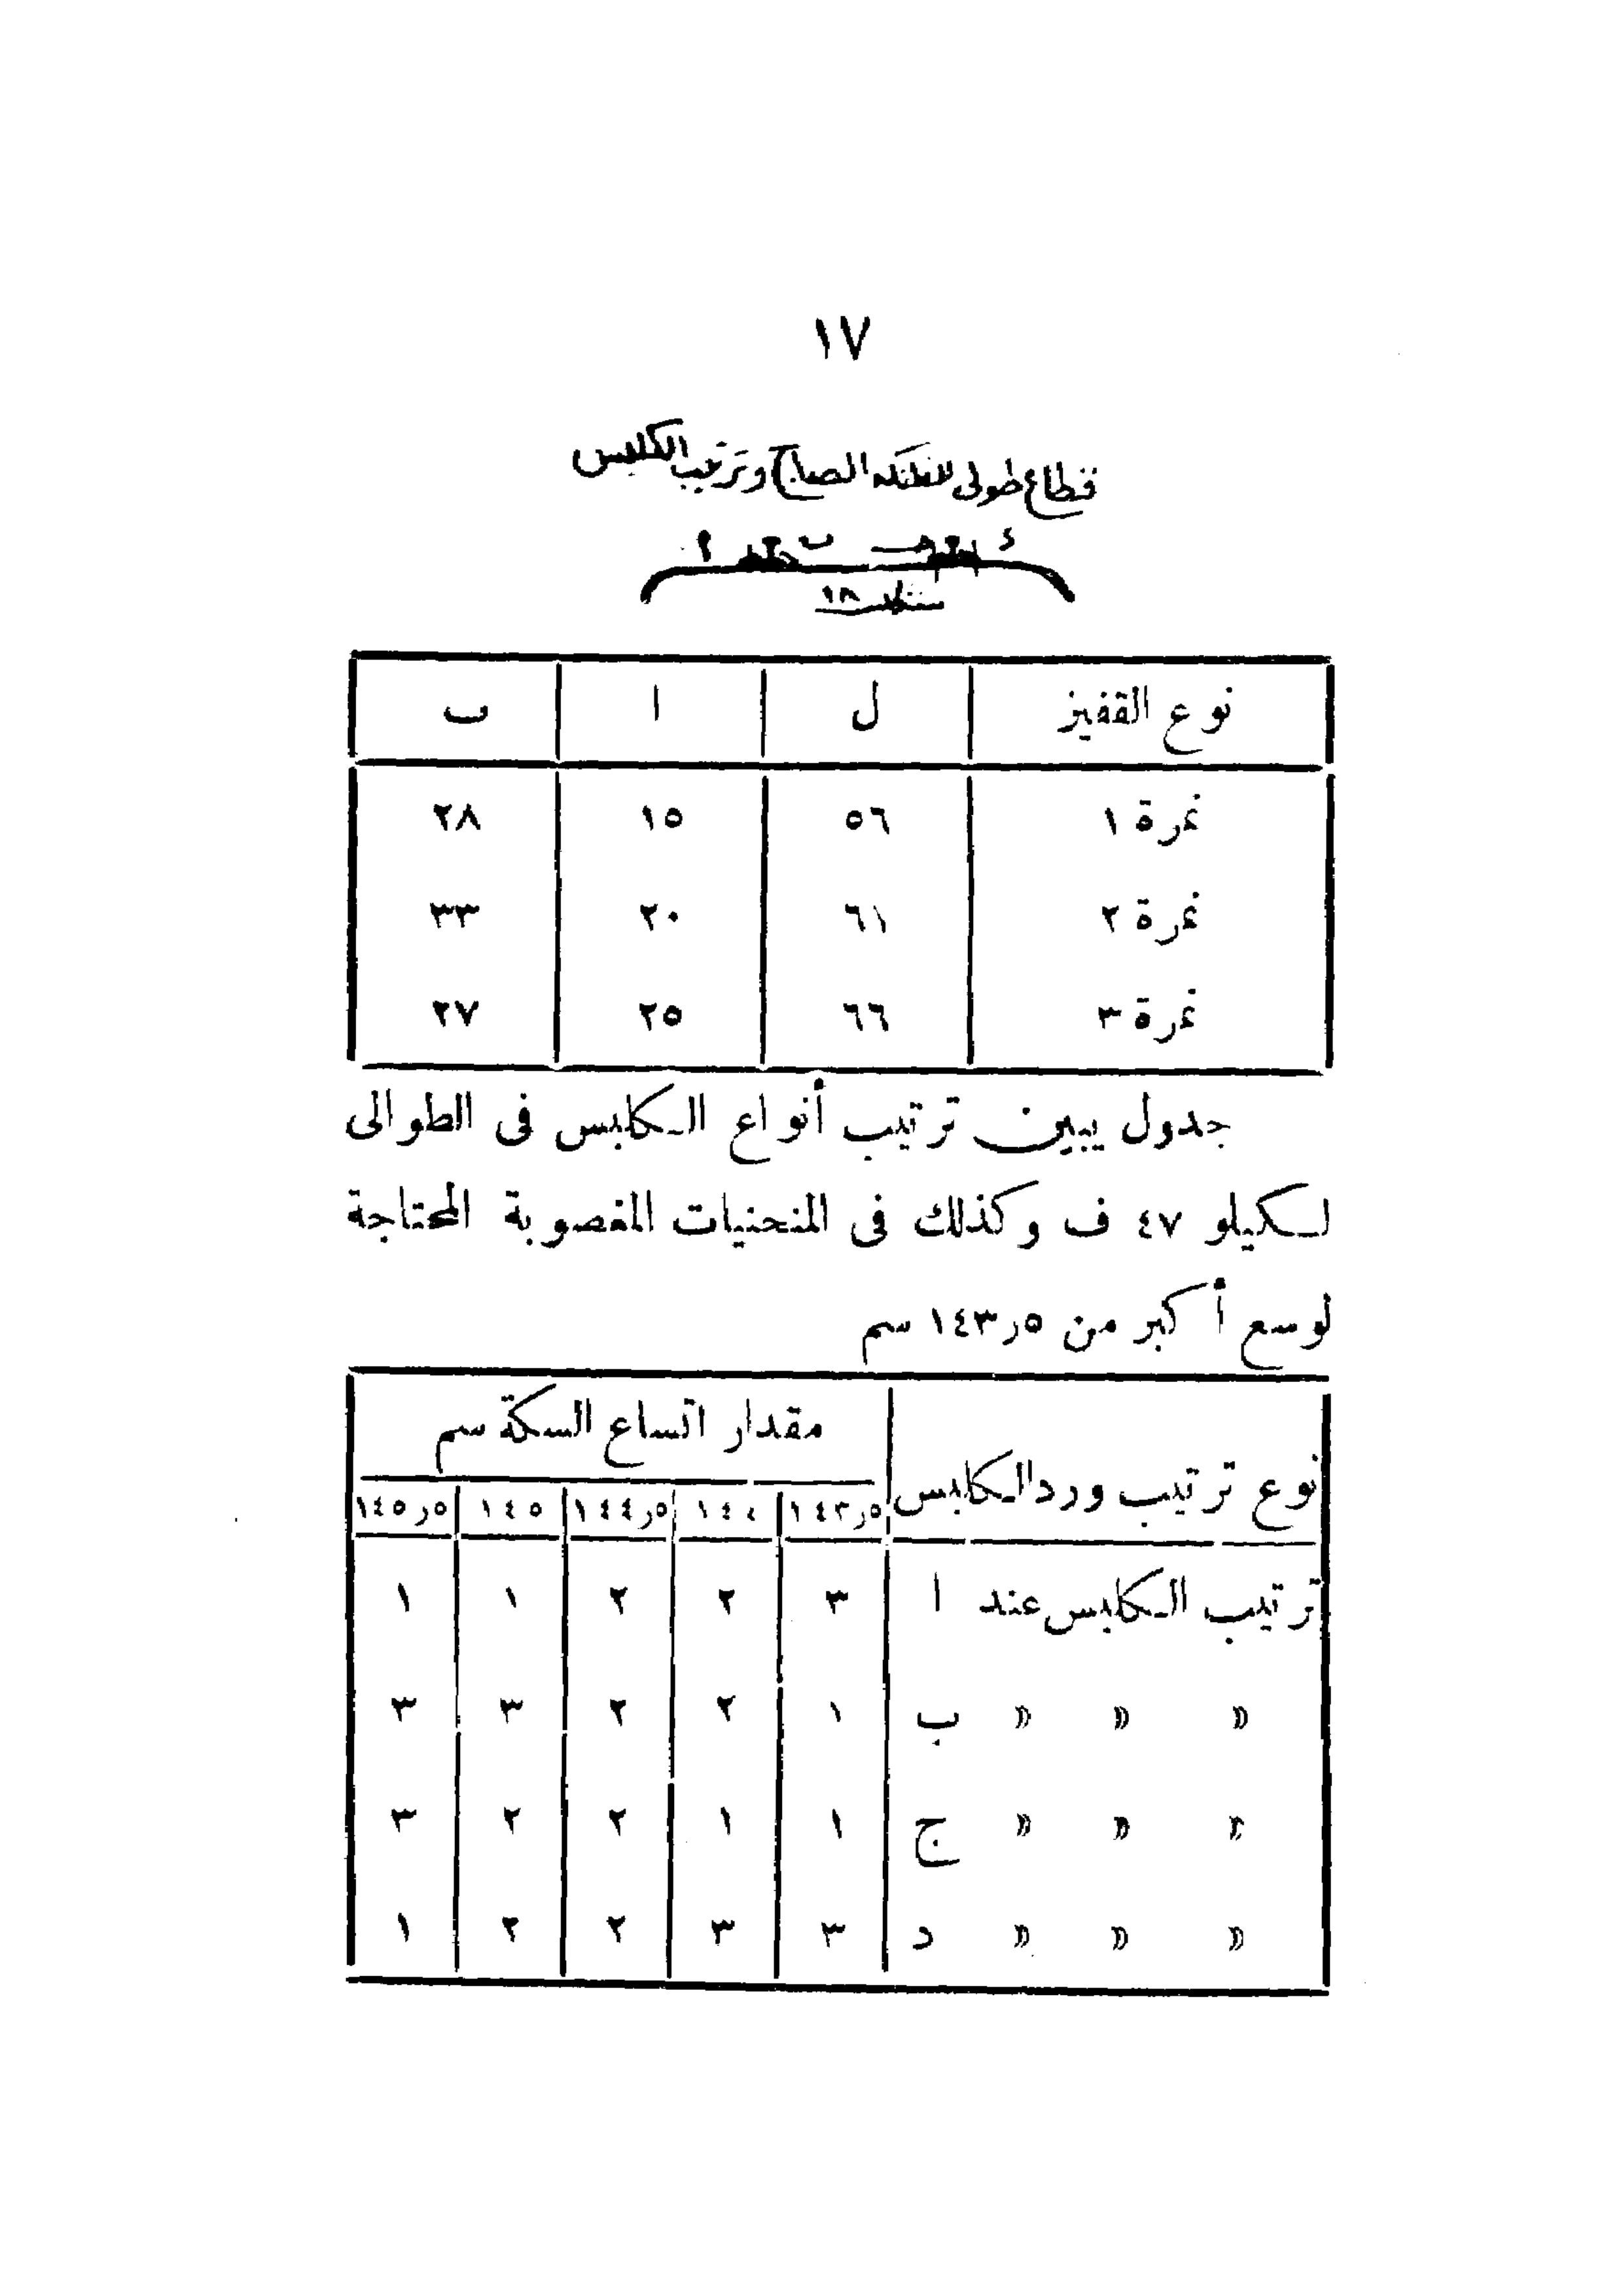 ١٧
قطاع طولى للفلنكه الصاج وترتيب الكلبس
د ب ا
شكل ١٨
نوع القفيز ل ا ب
نمرة ١ ٥٦ ١٥ ٢٨
نمرة ٢ ٦١ ٢٠ ٣٣
نمرة ٣ ٦٦ ٢٥ ٢٧
جدول يبين ترتيب أنواع الكلبس فى الطوالى
لكيلو ٤٧ ف وكذلك فى المنحنيات المغصوبة المحتاجة
لوسع أكبر من ١٤٣٫٥ سم
نوع ترتيب ورد الكلبس مقدار اتساع السكة سم
١٤٣٫٥ ١٤٤ ١٤٤٫٥ ١٤٥ ١٤٥٫٥
ترتيب الكلبس عند ا ٣ ٢ ٢ ١ ١
» » » ب ١ ٢ ٢ ٣ ٣
» » » ج ١ ١ ٢ ٢ ٣
» » » د ٣ ٣ ٢ ٢ ١